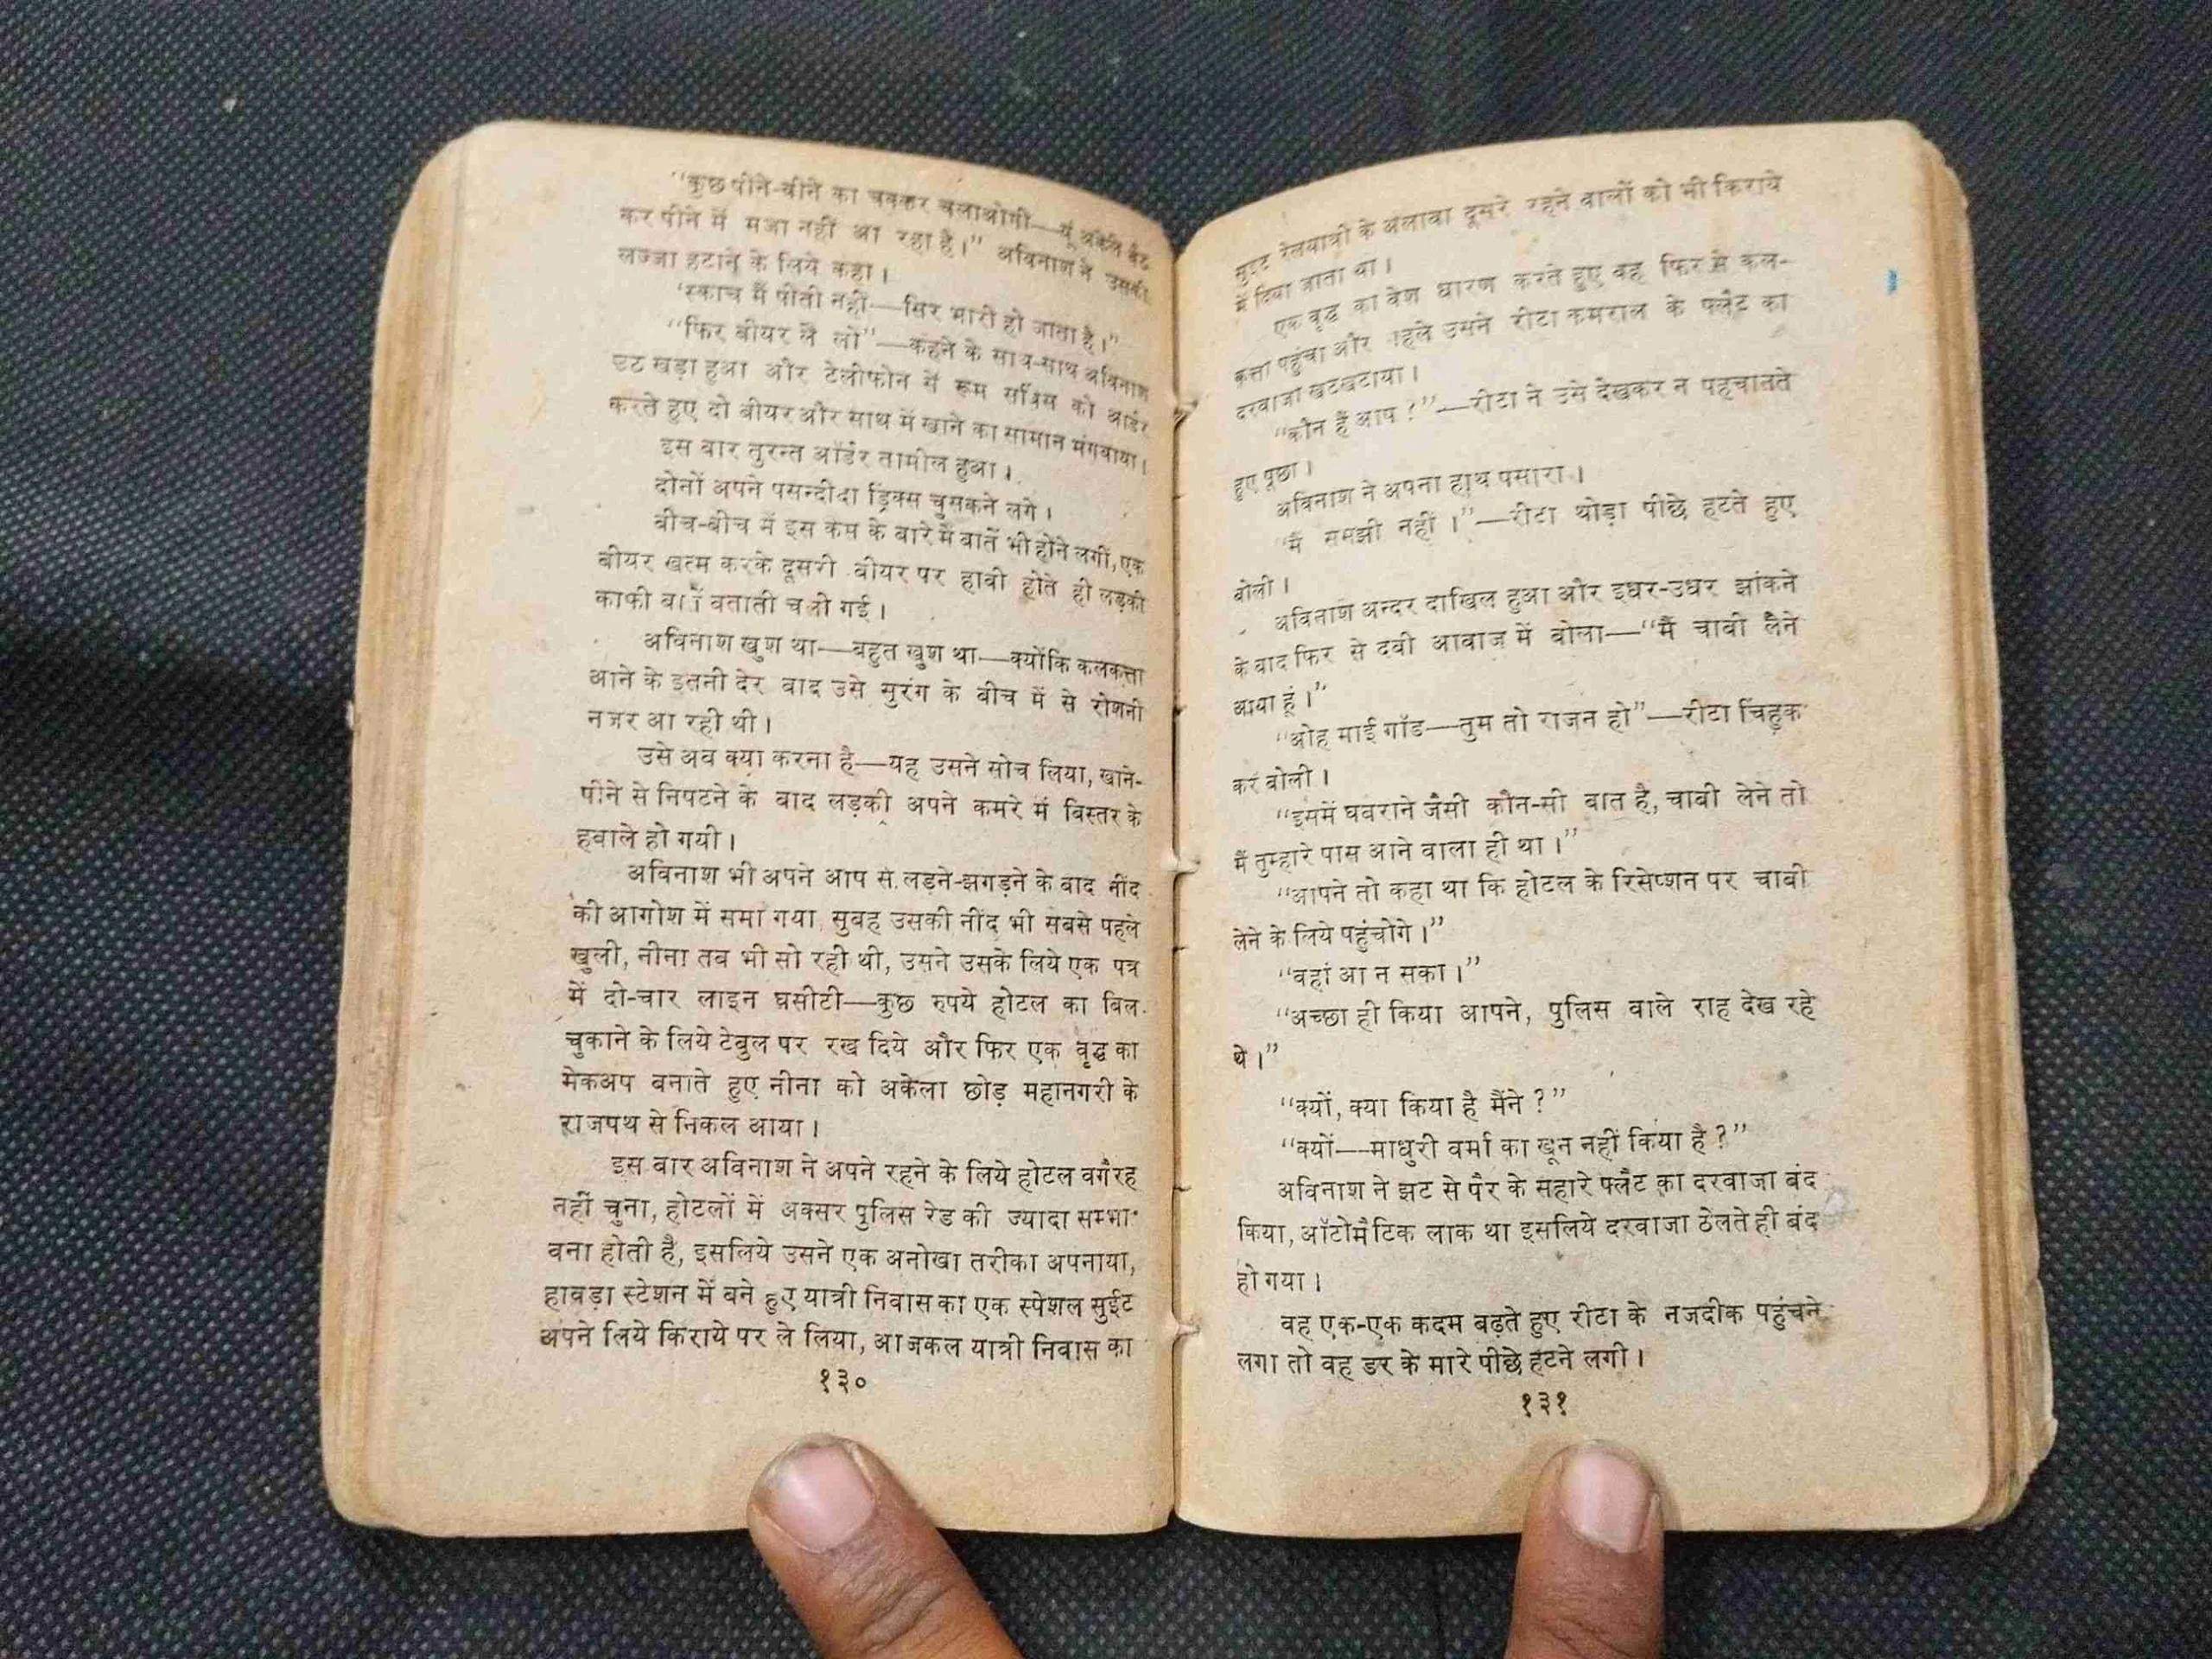 “कुछ पीने-वीने का चक्कर चलाओगी—यूं अकेले बैठ
कर पीने में मजा नहीं आ रहा है।” अविनाश ने उसकी
लज्जा हटाने के लिये कहा।
‘स्काच मैं पीती नहीं—सिर भारी हो जाता है।”
“फिर बीयर ले लो”—कहने के साथ-साथ अविनाश
उठ खड़ा हुआ और टेलीफोन में रूम सर्विस को आर्डर
करते हुए दो बीयर और साथ में खाने का सामान मंगवाया।
इस बार तुरन्त ऑर्डर तामील हुआ।
दोनों अपने पसन्दीदा ड्रिंक्स चुसकने लगे।
बीच-बीच में इस केस के बारे में बातें भी होने लगीं, एक
बीयर खत्म करके दूसरी बीयर पर हावी होते ही लड़की
काफी बताती चली गई।
अविनाश खुश था—बहुत खुश था—क्योंकि कलकत्ता
आने के इतनी देर बाद उसे सुरंग के बीच में से रोशनी
नजर आ रही थी।
उसे अब क्या करना है—यह उसने सोच लिया, खाने-
पीने से निपटने के बाद लड़की अपने कमरे में बिस्तर के
हवाले हो गयी।
अविनाश भी अपने आप से लड़ने-झगड़ने के बाद नींद
की आगोश में समा गया, सुबह उसकी नींद भी सबसे पहले
खुली, नीना तब भी सो रही थी, उसने उसके लिये एक पत्र
में दो-चार लाइन घसीटी—कुछ रुपये होटल का बिल
चुकाने के लिये टेबुल पर रख दिये और फिर एक वृद्ध का
मेकअप बनाते हुए नीना को अकेला छोड़ महानगरी के
राजपथ से निकल आया।
इस बार अविनाश ने अपने रहने के लिये होटल वगैरह
नहीं चुना, होटलों में अक्सर पुलिस रेड की ज्यादा सम्भा-
वना होती है, इसलिये उसने एक अनोखा तरीका अपनाया,
हावड़ा स्टेशन में बने हुए यात्री निवास का एक स्पेशल सुईट
अपने लिये किराये पर ले लिया, आजकल यात्री निवास का
१३०
सुइट रेलयात्री के अलावा दूसरे रहने वालों को भी किराये
में दिया जाता था।
एक वृद्ध का वेश धारण करते हुए वह फिर से कल-
कत्ता पहुंचा और पहले उसने रीटा कमराल के फ्लैट का
दरवाजा खटखटाया।
“कौन हैं आप?”—रीटा ने उसे देखकर न पहचानते
हुए पूछा।
अविनाश ने अपना हाथ पसारा।
“मैं समझी नहीं।”—रीटा थोड़ा पीछे हटते हुए
बोली।
अविनाश अन्दर दाखिल हुआ और इधर-उधर झांकने
के बाद फिर से दबी आवाज में बोला—“मैं चाबी लेने
आया हूं।”
“ओह माई गॉड—तुम तो राजन हो”—रीटा चिंहुक
कर बोली।
“इसमें घबराने जैसी कौन-सी बात है, चाबी लेने तो
मैं तुम्हारे पास आने वाला ही था।”
“आपने तो कहा था कि होटल के रिसेप्शन पर चाबी
लेने के लिये पहुंचोगे।”
“वहां आ न सका।”
“अच्छा ही किया आपने, पुलिस वाले राह देख रहे
थे।”
“क्यों, क्या किया है मैंने?”
“क्यों—माधुरी वर्मा का खून नहीं किया है?”
अविनाश ने झट से पैर के सहारे फ्लैट का दरवाजा बंद
किया, ऑटोमैटिक लाक था इसलिये दरवाजा ठेलते ही बंद
हो गया।
वह एक-एक कदम बढ़ते हुए रीटा के नजदीक पहुंचने
लगा तो वह डर के मारे पीछे हटने लगी।
१३१